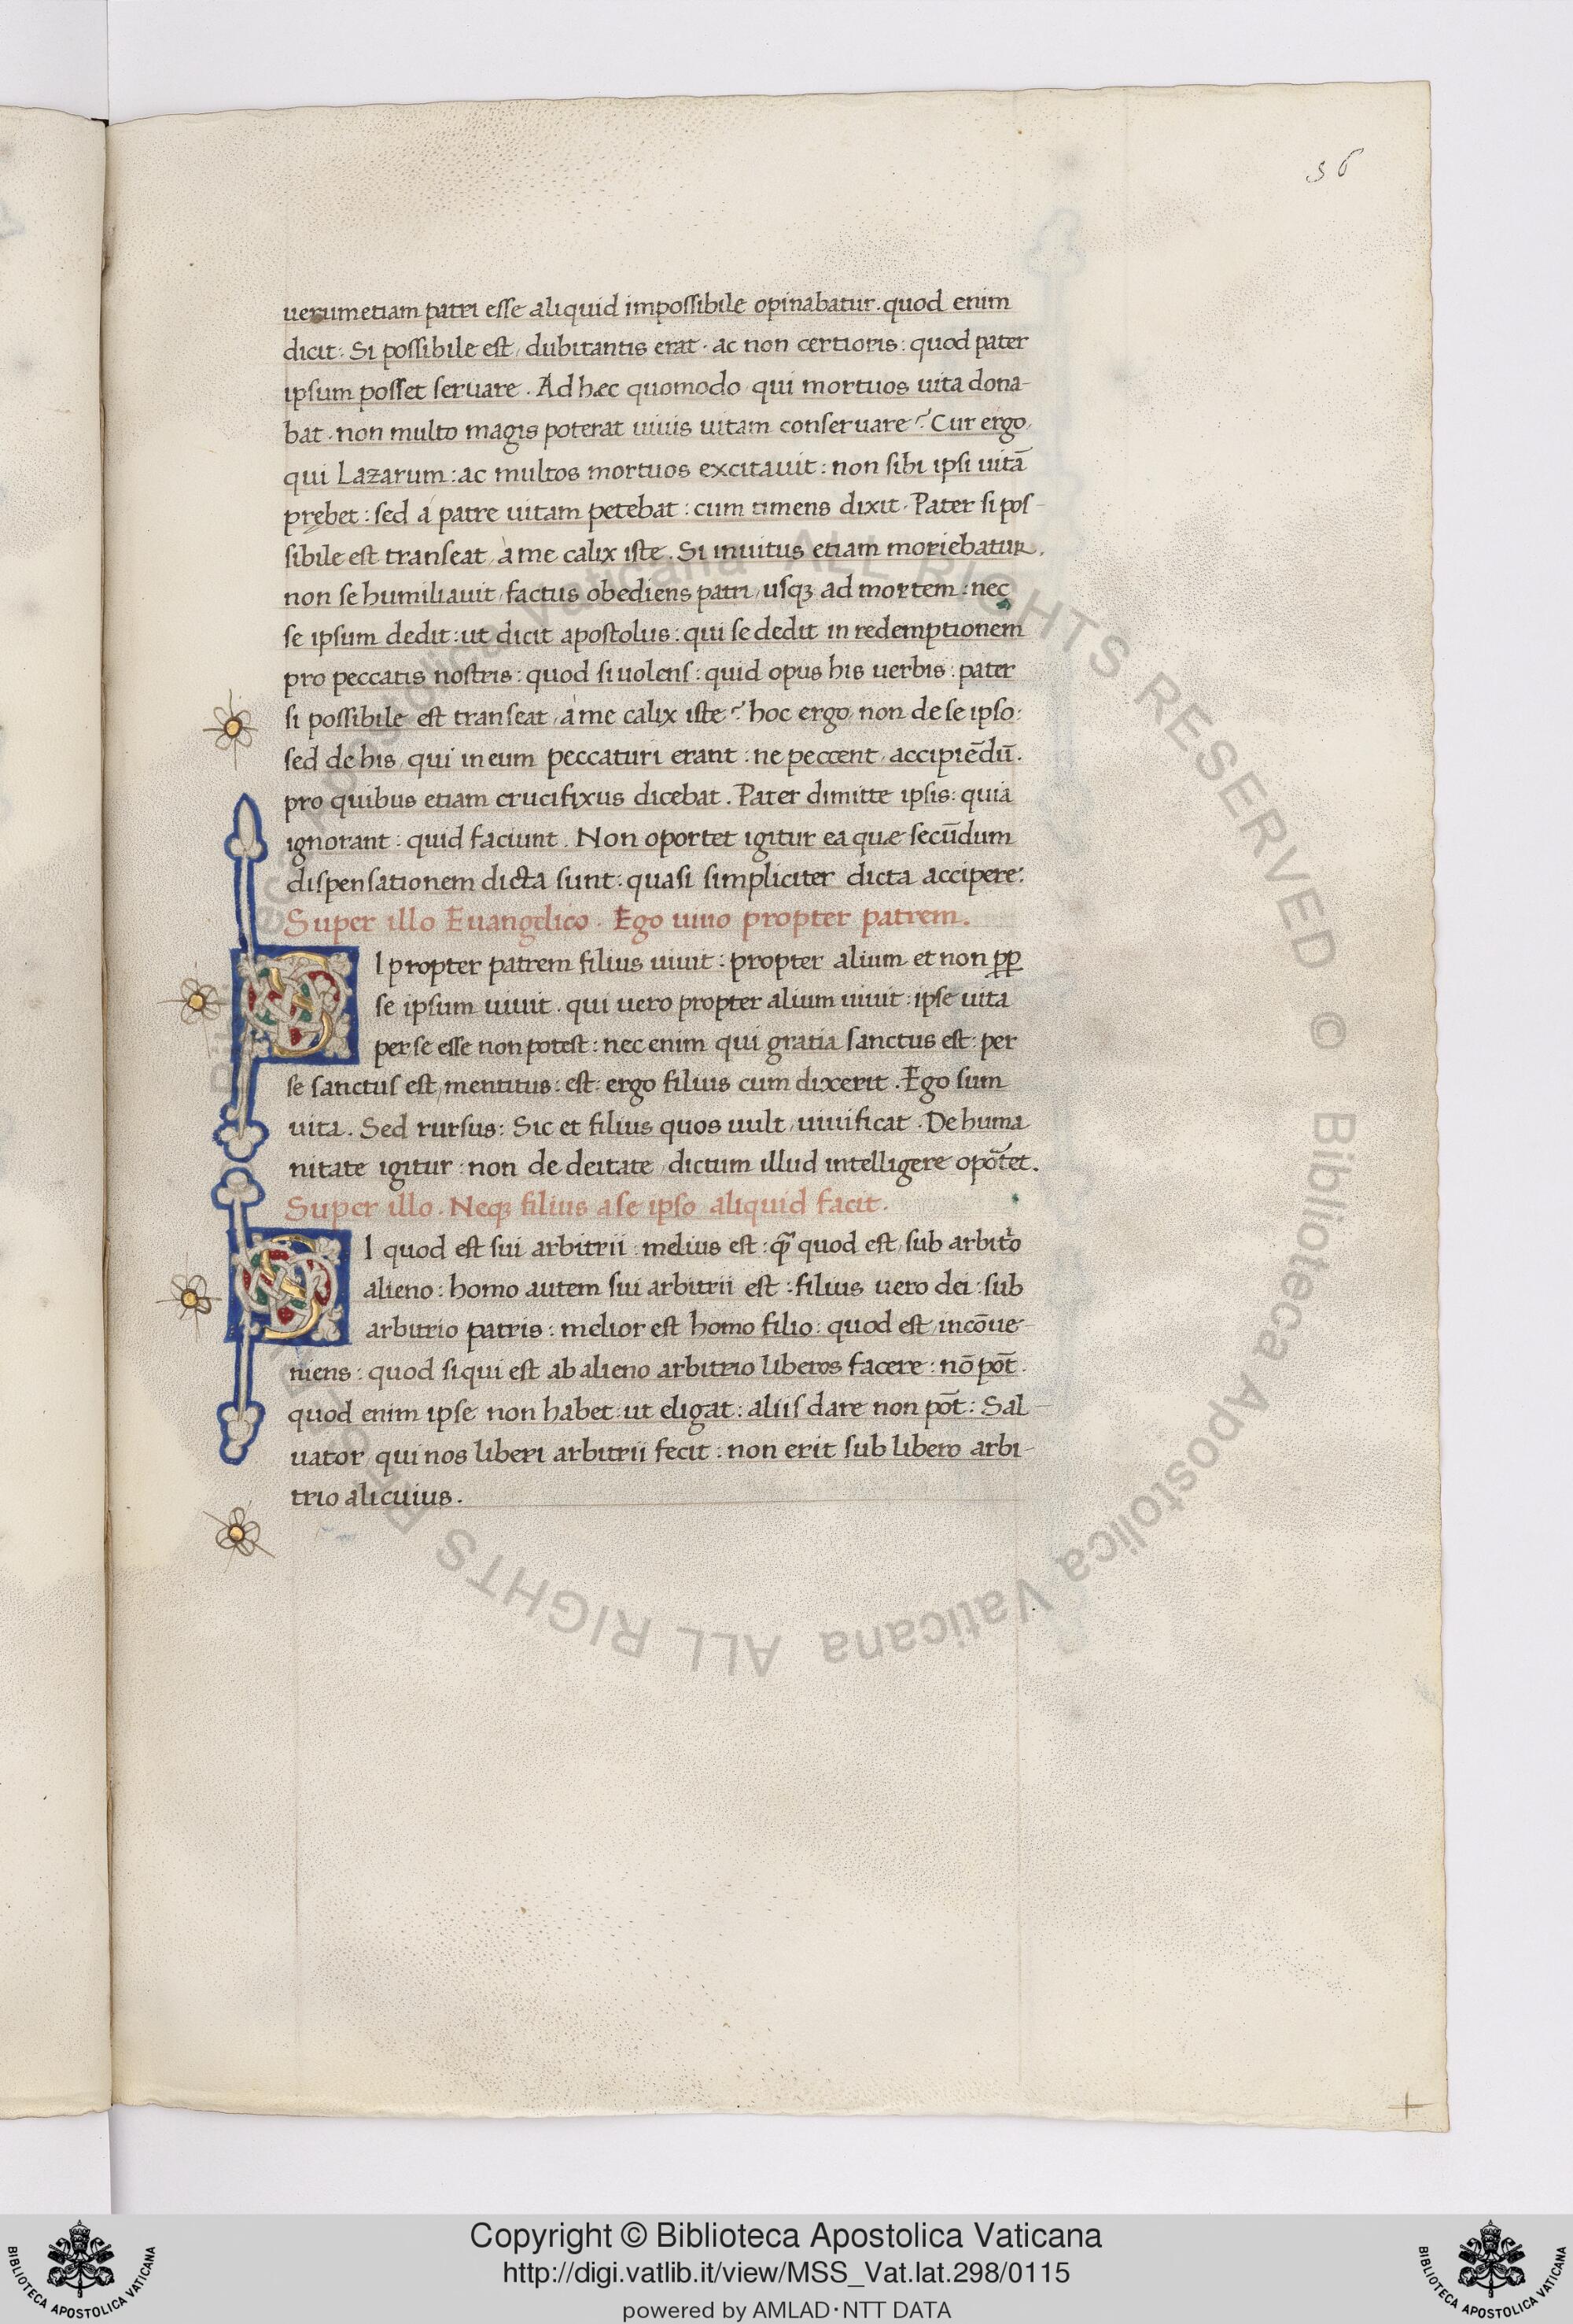 36
uerumetiam patri esse aliquid impossibile opinabatur. quod enim
dicit: Si possibile est, dubitantis erat. ac non certioris: quod pater
ipsum posset seruare. Ad hæc quomodo qui mortuos uita dona-
bat. non multo magis poterat uiuis uitam conseruare? Cur ergo,
qui Lazarum: ac multos mortuos excitauit: non sibi ipsi uitā
prębet: sed á patre uitam petebat: cum timens dixit. Pater si pos-
sibile est transeat, à me calix iste. Si inuitus etiam moriebatur.
non se humiliauit, factus obediens patri, usqꝫ ad mortem: nec
se ipsum dedit: ut dicit apostolus: qui se dedit in redemptionem
pro peccatis nostris: quod si uolens: quid opus his uerbis: pater
si possibile est transeat, à me calix iste? hoc ergo, non de se ipso:
sed de his, qui in eum peccaturi erant: ne peccent, accipiēdū.
pro quibus etiam crucifixus dicebat. Pater dimitte ipsis: quia
ignorant: quid faciunt. Non oportet igitur ea quæ secūdum
dispensationem dicta sunt: quasi simpliciter dicta accipere:
Super illo Euangelico. Ego uiuo propter patrem.
SI propter patrem filius uiuit: propter alium et non pp̄
se ipsum uiuit. qui uero propter alium uiuit: ipse uita
per se esse non potest: nec enim qui gratia sanctus est: per
se sanctus est, mentitus: est: ergo filius cum dixerit. Ego sum
uita. Sed rursus: Sic et filius quos uult, uiuificat. De huma
nitate igitur: non de deitate, dictum illud intelligere opōtet.
Super illo. Neqꝫ filius a se ipso aliquid facit.
SI quod est sui arbitrii: melius est: q̄ quod est, sub arbitrͦo
alieno: homo autem sui arbitrii est: filius uero dei: sub
arbitrio patris: melior est homo filio: quod est, incōue-
niens: quod si qui est ab alieno arbitrio liberos facere: nō pōt.
quod enim ipse non habet: ut eligat: aliis dare non pōt: Sal-
uator, qui nos liberi arbitrii fecit: non erit sub libero arbi-
trio alicuius.
Biblioteca Apostolica Vaticana ALL RIGHTS RESERVED © Biblioteca Apostolica Vaticana ALL RIGHTS RESERVED
Copyright © Biblioteca Apostolica Vaticana
http://digi.vatlib.it/view/MSS_Vat.lat.298/0115
powered by AMLAD·NTT DATA
BIBLIOTECA APOSTOLICA VATICANA
BIBLIOTECA APOSTOLICA VATICANA